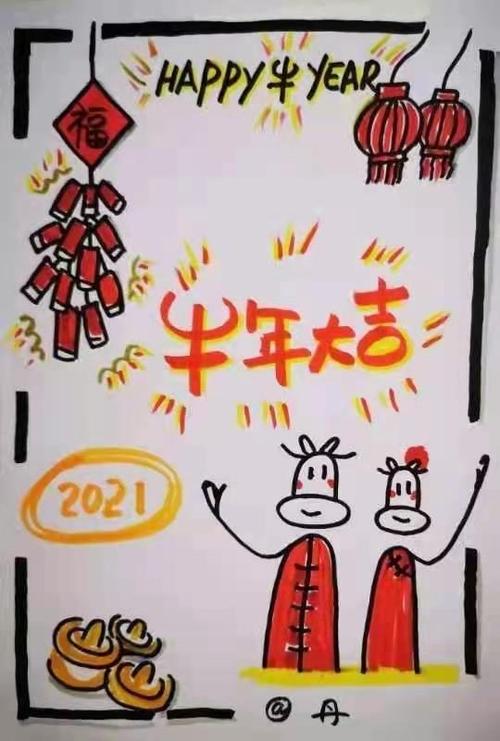 HAPPY 牛 YEAR
福
牛年大吉
2021
@ 丹